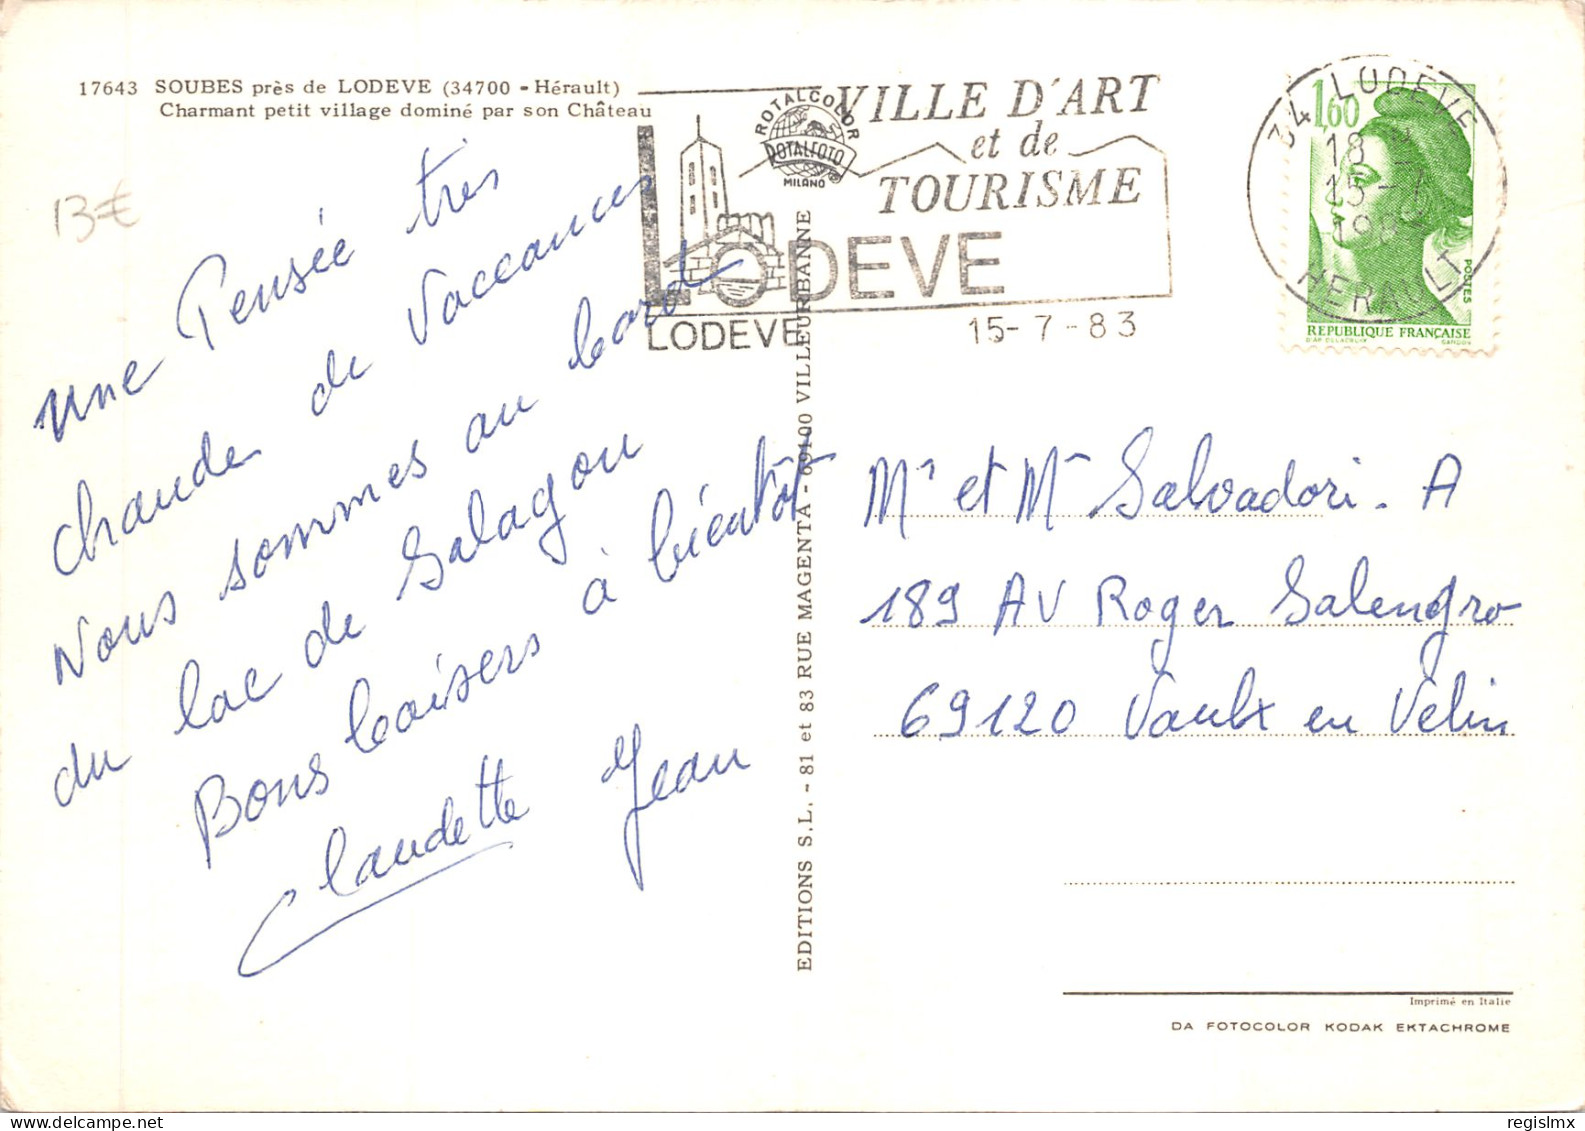 17643 SOUBES près de LODEVE (34700 - Hérault)
Charmant petit village dominé par son Château
13€
une Pensée très
chaude de Vaccances
Nous sommes au bord
du lac de Salagou
Bons baisers à bientôt
Claudette Jean
ROTALCOLOR
ROTALFOTO
MILANO
VILLE D'ART
et de
TOURISME
LODEVE
LODEVE
15-7-83
34 LODEVE
18 H
15-7
HERAULT
1,60
POSTES
REPUBLIQUE FRANÇAISE
D'AP. DELACROIX GANDON
EDITIONS S.L. - 81 et 83 RUE MAGENTA - 69100 VILLEURBANNE
Mr et Mr Salvadori. A
189 AV Roger Salengro
69120 Vaulx en Velin
Imprimé en Italie
DA FOTOCOLOR KODAK EKTACHROME
regislmx